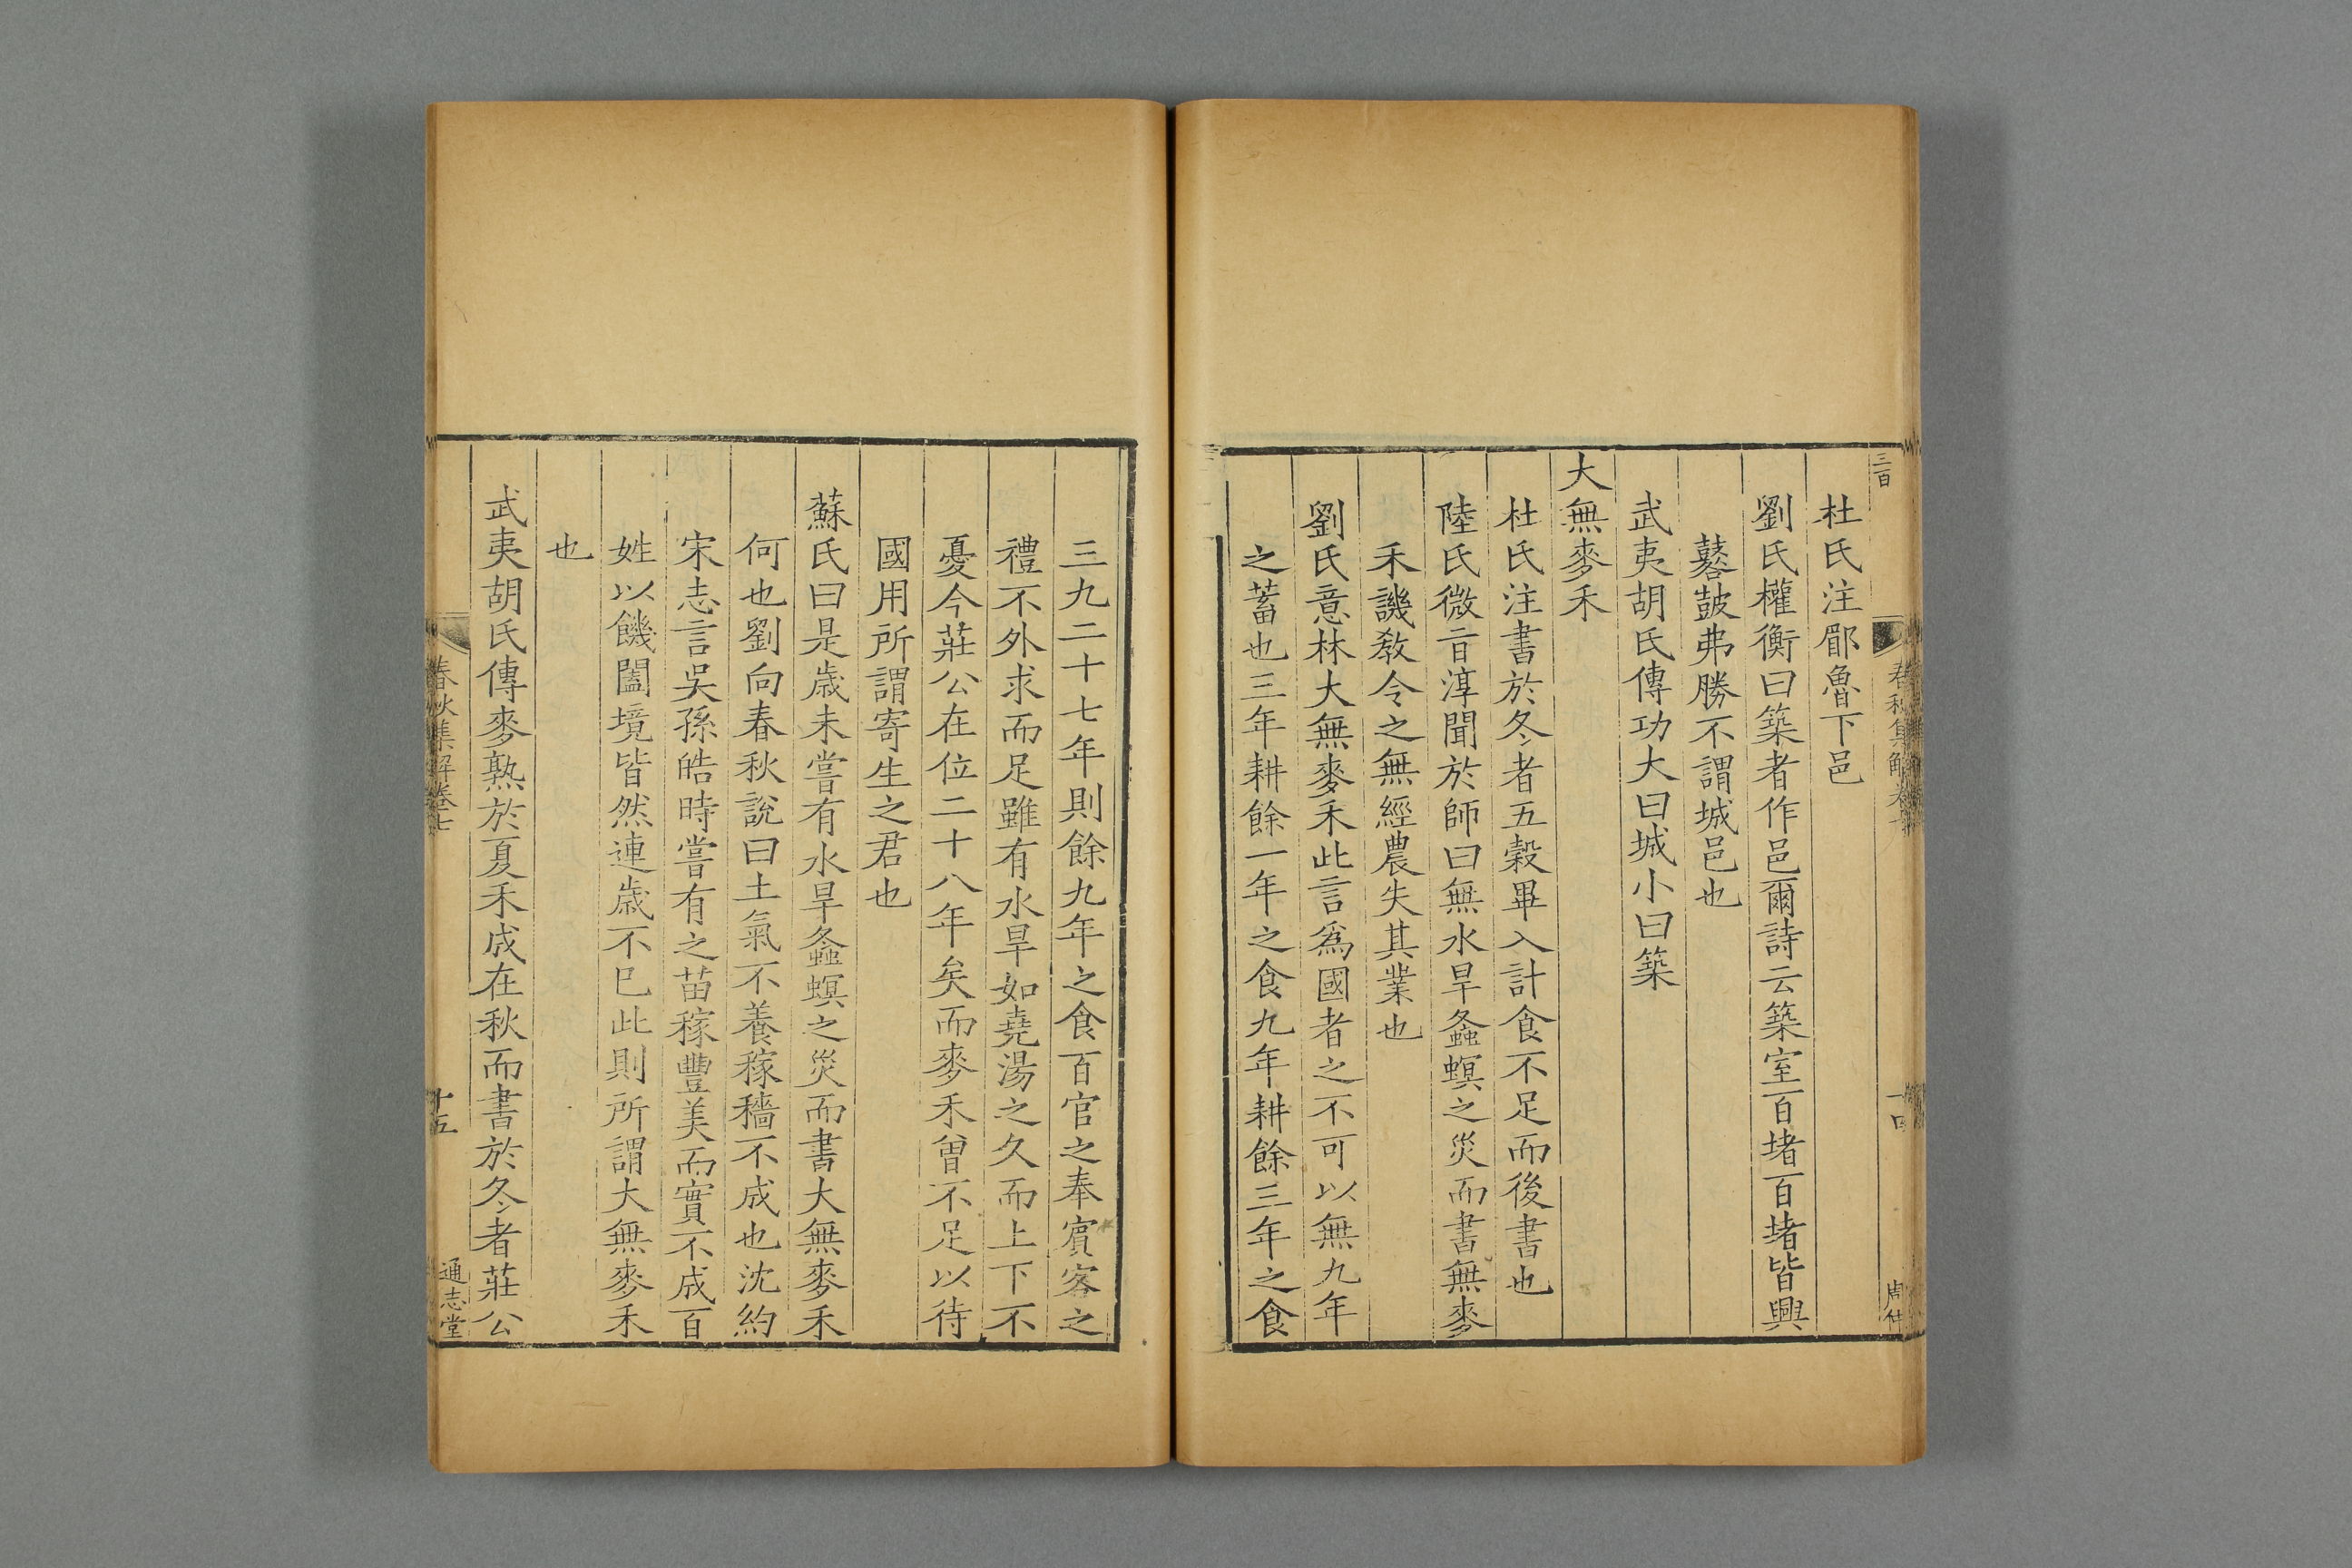 三百
春秋集解卷七
十四
周仲
杜氏注郿魯下邑
劉氏權衡曰築者作邑爾詩云築室百堵百堵皆興
鼛鼓弗勝不謂城邑也
武夷胡氏傳功大曰城小曰築
大無麥禾
杜氏注書於冬者五穀畢入計食不足而後書也
陸氏微㫖淳聞於師曰無水旱螽螟之災而書無麥
禾譏教令之無經農失其業也
劉氏意林大無麥禾此言爲國者之不可以無九年
之蓄也三年耕餘一年之食九年耕餘三年之食
三九二十七年則餘九年之食百官之奉賔客之
禮不外求而足雖有水旱如堯湯之久而上下不
憂今莊公在位二十八年矣而麥禾曾不足以待
國用所謂寄生之君也
蘇氏曰是歳未嘗有水旱螽螟之災而書大無麥禾
何也劉向春秋說曰土氣不養稼穡不成也沈約
宋志言吳孫皓時嘗有之苗稼豐美而實不成百
姓以饑闔境皆然連歳不已此則所謂大無麥禾
也
武夷胡氏傳麥熟於夏禾成在秋而書於冬者莊公
春秋集解卷七
十五
通志堂